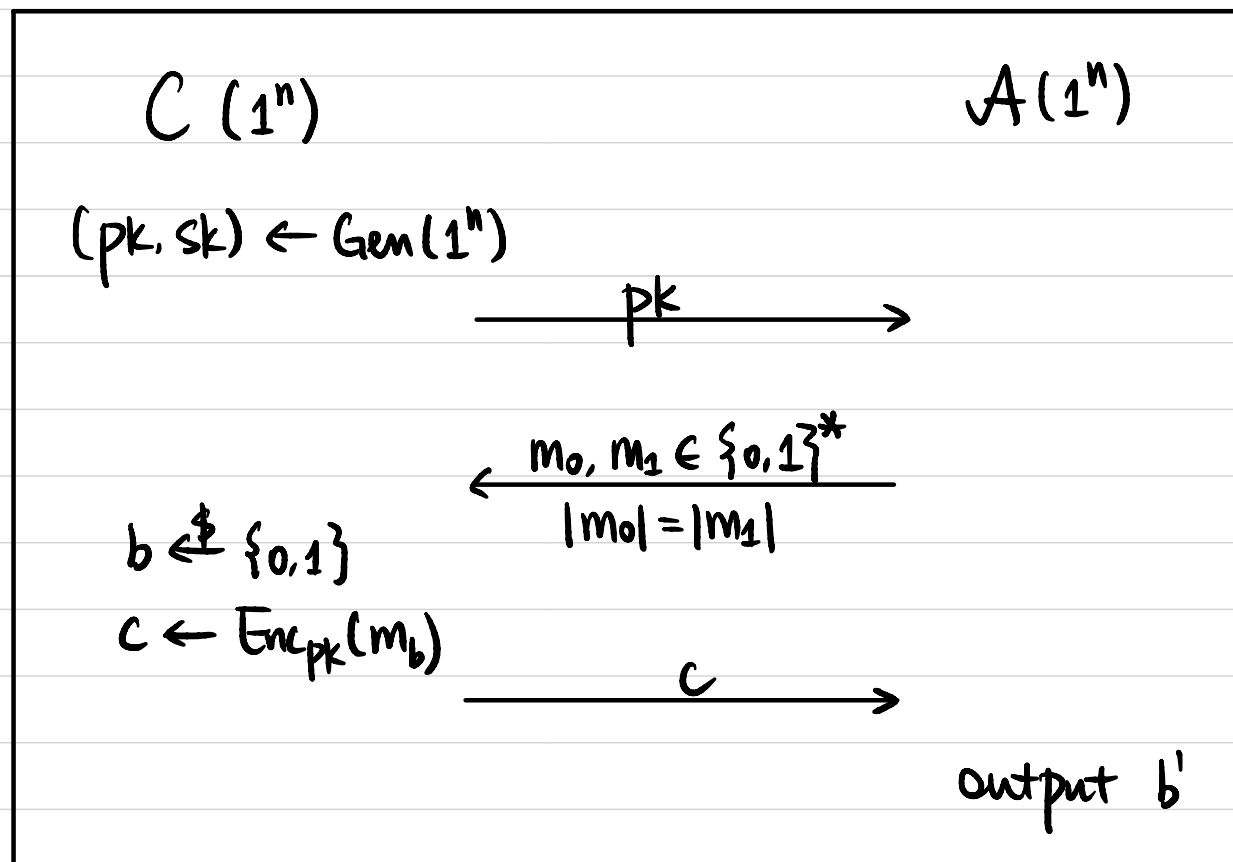 C(1ⁿ) A(1ⁿ)
(pk, sk) ← Gen(1ⁿ)
pk
m₀, m₁ ∈ {0,1}*
|m₀| = |m₁|
b ←$ {0,1}
c ← Enc_pk(m_b)
c
output b'